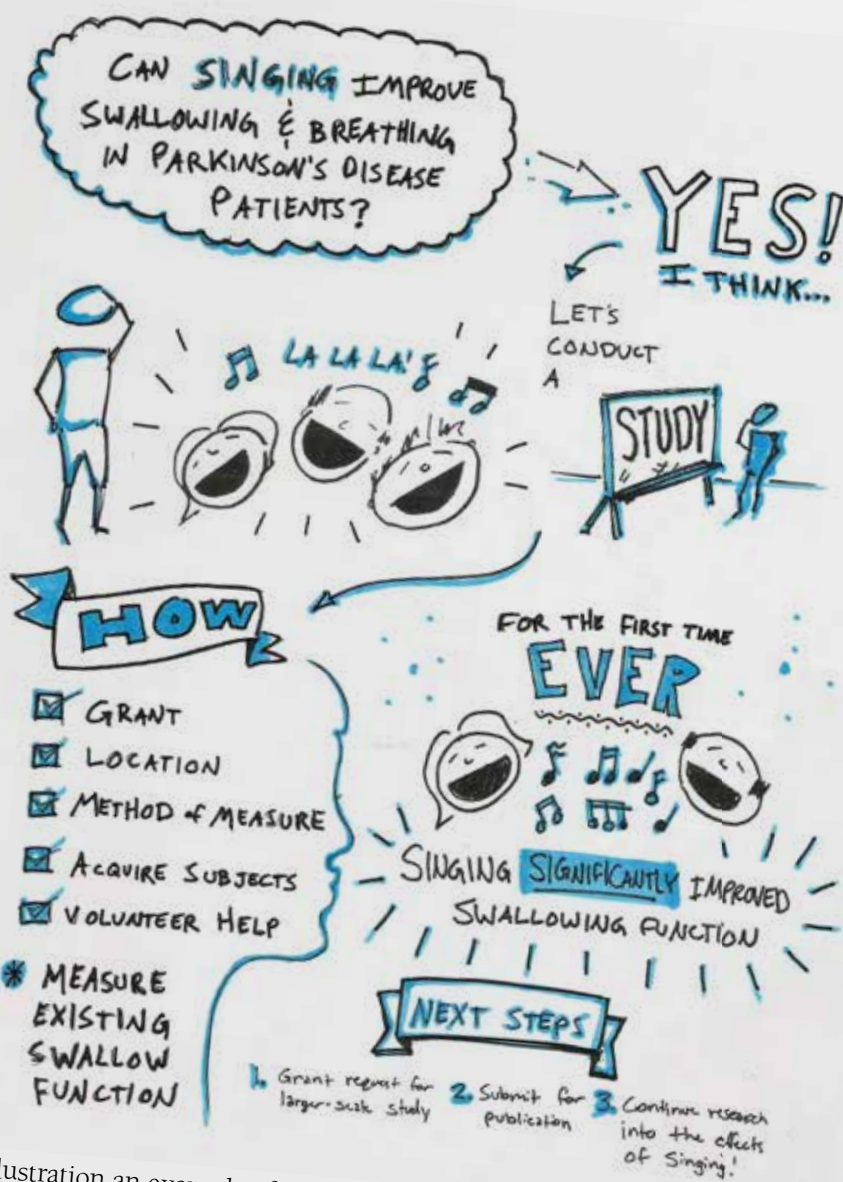 CAN SINGING IMPROVE
SWALLOWING & BREATHING
IN PARKINSON'S DISEASE
PATIENTS?
YES!
I THINK...
LET'S
CONDUCT
A
STUDY
LA LA LA!
HOW
GRANT
LOCATION
METHOD of MEASURE
ACQUIRE SUBJECTS
VOLUNTEER HELP
* MEASURE
EXISTING
SWALLOW
FUNCTION
FOR THE FIRST TIME
EVER
SINGING SIGNIFICANTLY IMPROVED
SWALLOWING FUNCTION
NEXT STEPS
1. Grant request for
larger-scale study
2. Submit for
publication
3. Continue research
into the effects
of Singing!
llustration an example